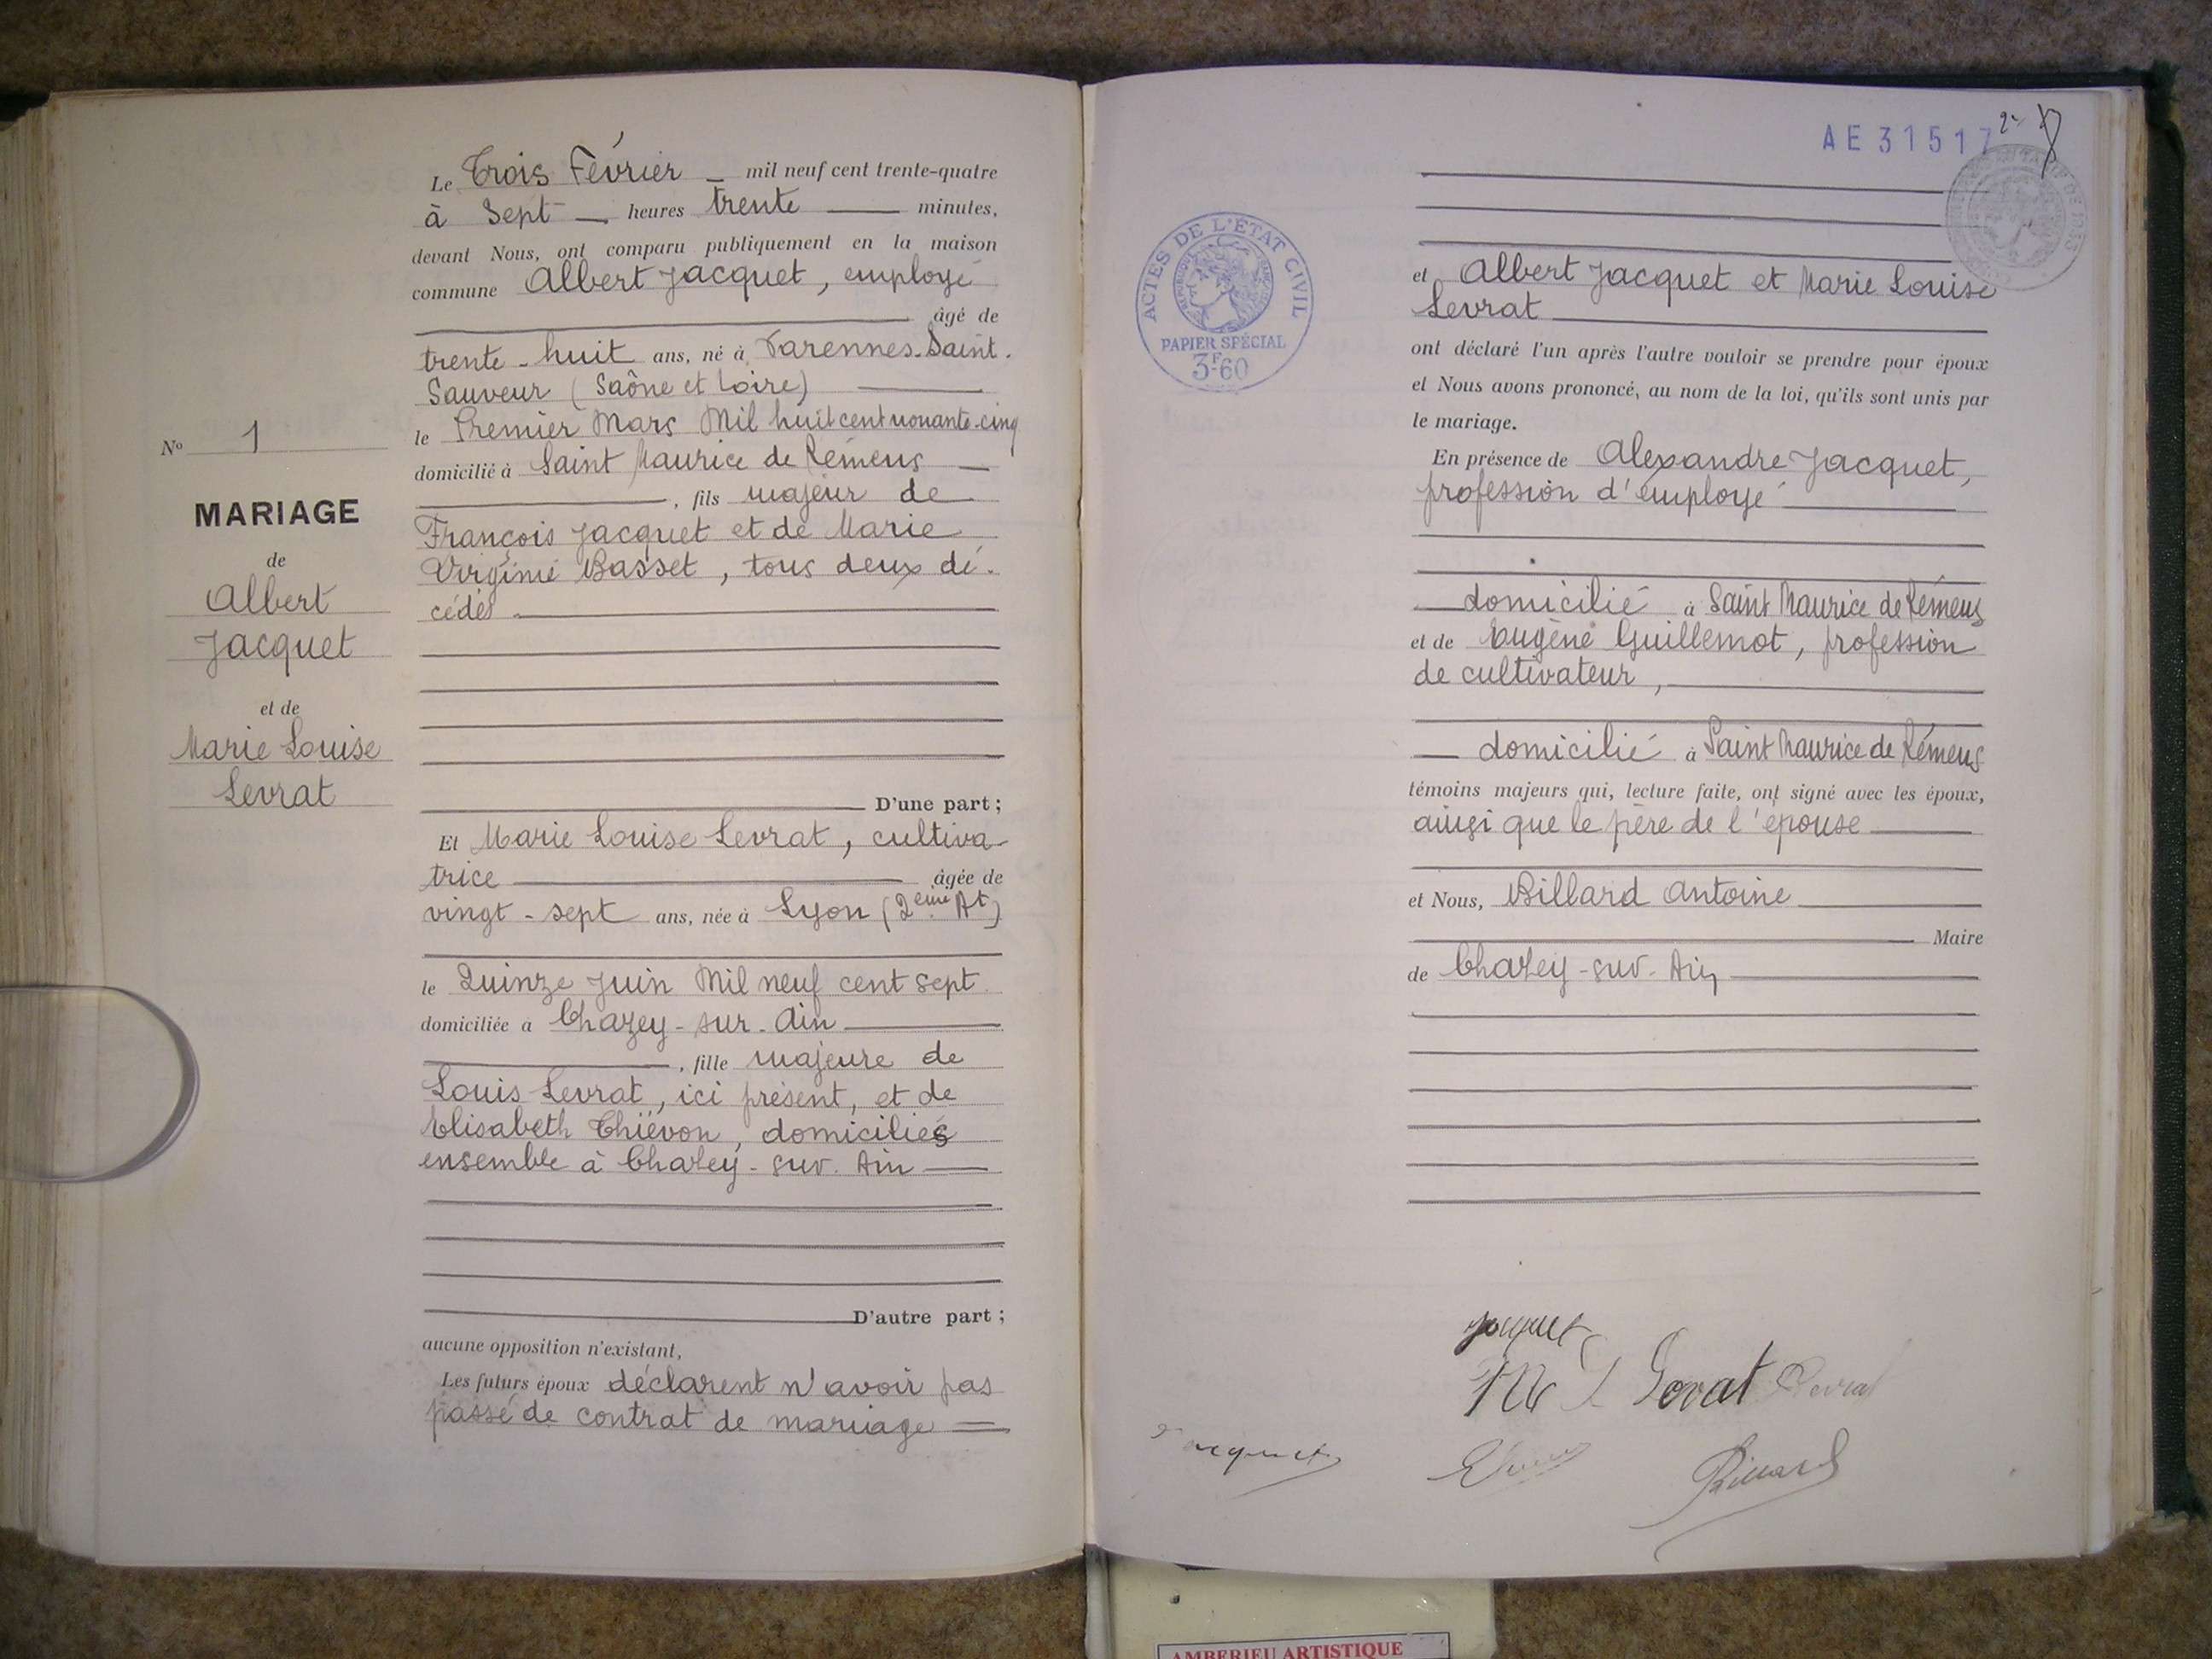 N° 1
MARIAGE
de
Albert
Jacquet
et de
Marie Louise
Levrat
Le Trois Février mil neuf cent trente-quatre
à Sept heures trente minutes,
devant Nous, ont comparu publiquement en la maison
commune Albert Jacquet, employé
âgé de
trente-huit ans, né à Varennes-Saint-
Sauveur (Saône et Loire)
le Premier Mars Mil huit cent nonante-cinq
domicilié à Saint Maurice de Rémens
, fils majeur de
François Jacquet et de Marie
Virginie Basset, tous deux dé-
cédés
D'une part ;
Et Marie Louise Levrat, cultiva-
trice âgée de
vingt-sept ans, née à Lyon (2ème At)
le Quinze Juin Mil neuf cent sept
domiciliée à Chazey-sur-Ain
, fille majeure de
Louis Levrat, ici présent, et de
Elisabeth Thiévon, domiciliés
ensemble à Chazey-sur-Ain
D'autre part ;
aucune opposition n'existant,
Les futurs époux déclarent n'avoir pas
passé de contrat de mariage
AE 31517
2
ACTES DE L'ÉTAT CIVIL
PAPIER SPÉCIAL
3F60
et Albert Jacquet et Marie Louise
Levrat
ont déclaré l'un après l'autre vouloir se prendre pour époux
et Nous avons prononcé, au nom de la loi, qu'ils sont unis par
le mariage.
En présence de Alexandre Jacquet,
profession d'employé
domicilié à Saint Maurice de Rémens
et de Eugène Guillemot, profession
de cultivateur,
domicilié à Saint Maurice de Rémens
témoins majeurs qui, lecture faite, ont signé avec les époux,
ainsi que le père de l'épouse
et Nous, Billard Antoine
Maire
de Chazey-sur-Ain
Jacquet
M L Levrat Levrat
Jacquet
Billard
AMBERIEU ARTISTIQUE